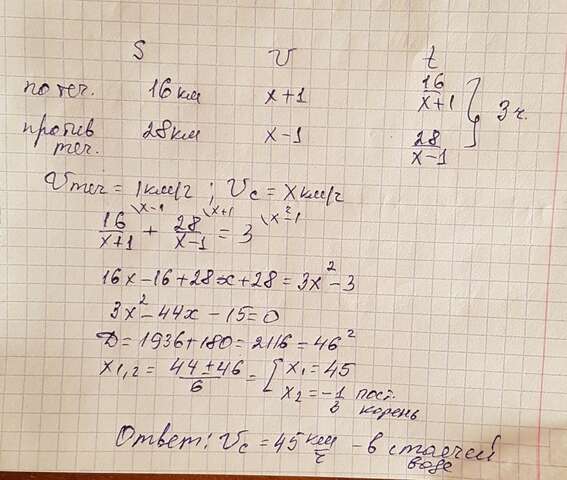 S V t
по теч. 16 км x+1 16/x+1
} 3 ч.
против теч. 28 км x-1 28/x-1
Vтеч = 1 км/ч ; Vс = x км/ч
16/x+1 \x-1 + 28/x-1 \x+1 = 3 \x²-1
16x-16+28x+28=3x²-3
3x²-44x-15=0
D=1936+180=2116=46²
x1,2 = 44±46/6 = [ x1=45
x2=-1/3 пост. корень
Ответ: Vс = 45 км/ч - в стоячей воде